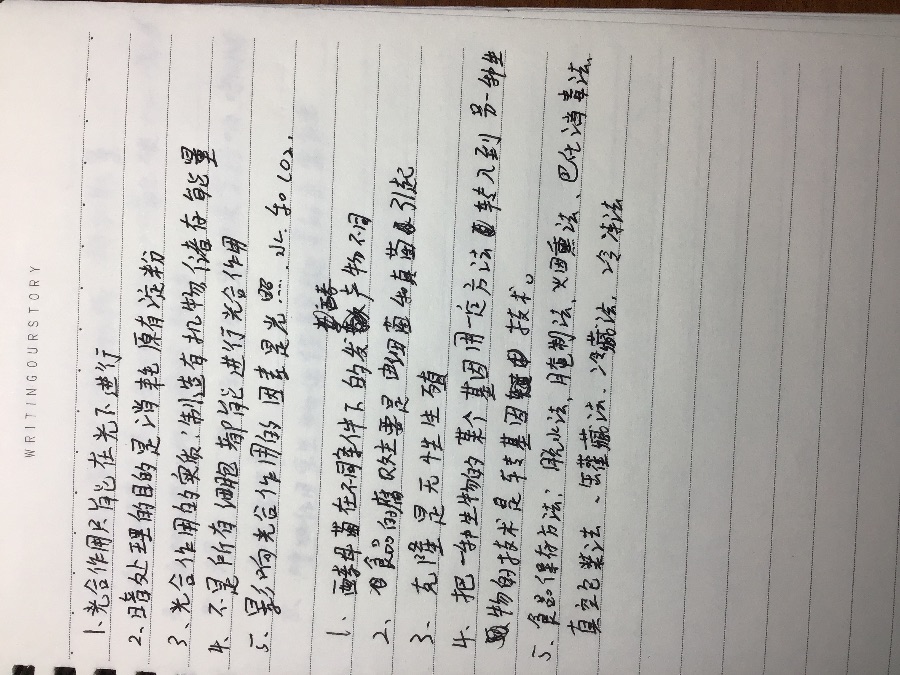 WRITINGOURSTORY
1、光合作用只能在光下进行
2、暗处理的目的是消耗原有淀粉
3、光合作用的实质:制造有机物储存能量
4、不是所有细胞都能进行光合作用
5、影响光合作用的因素是光照……水和CO2.
1、酵母菌在不同条件下的发酵产物不同
2、食品的腐败主要是由细菌和真菌引起
3、克隆是无性生殖
4、把一种生物的某个基因用一定方法转入到另一种生
物的技术是转基因技术。
5、食品保存方法:脱水法,腌制法、烟熏法、巴氏消毒法
真空包装法、罐藏法、冷藏法,冷冻法